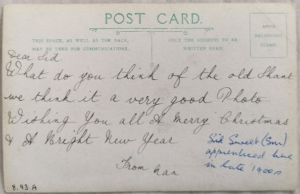 POST CARD.
THIS SPACE, AS WELL AS THE BACK, MAY BE USED FOR COMMUNICATIONS.
ONLY THE ADDRESS TO BE WRITTEN HERE.
Dear Sid
What do you think of the old Shant
we think it a very good Photo
Wishing You all A Merry Christmas
& A Bright New Year
From
Sid Sweet (Snr)
apprenticed here
in late 1900s
8.93 A